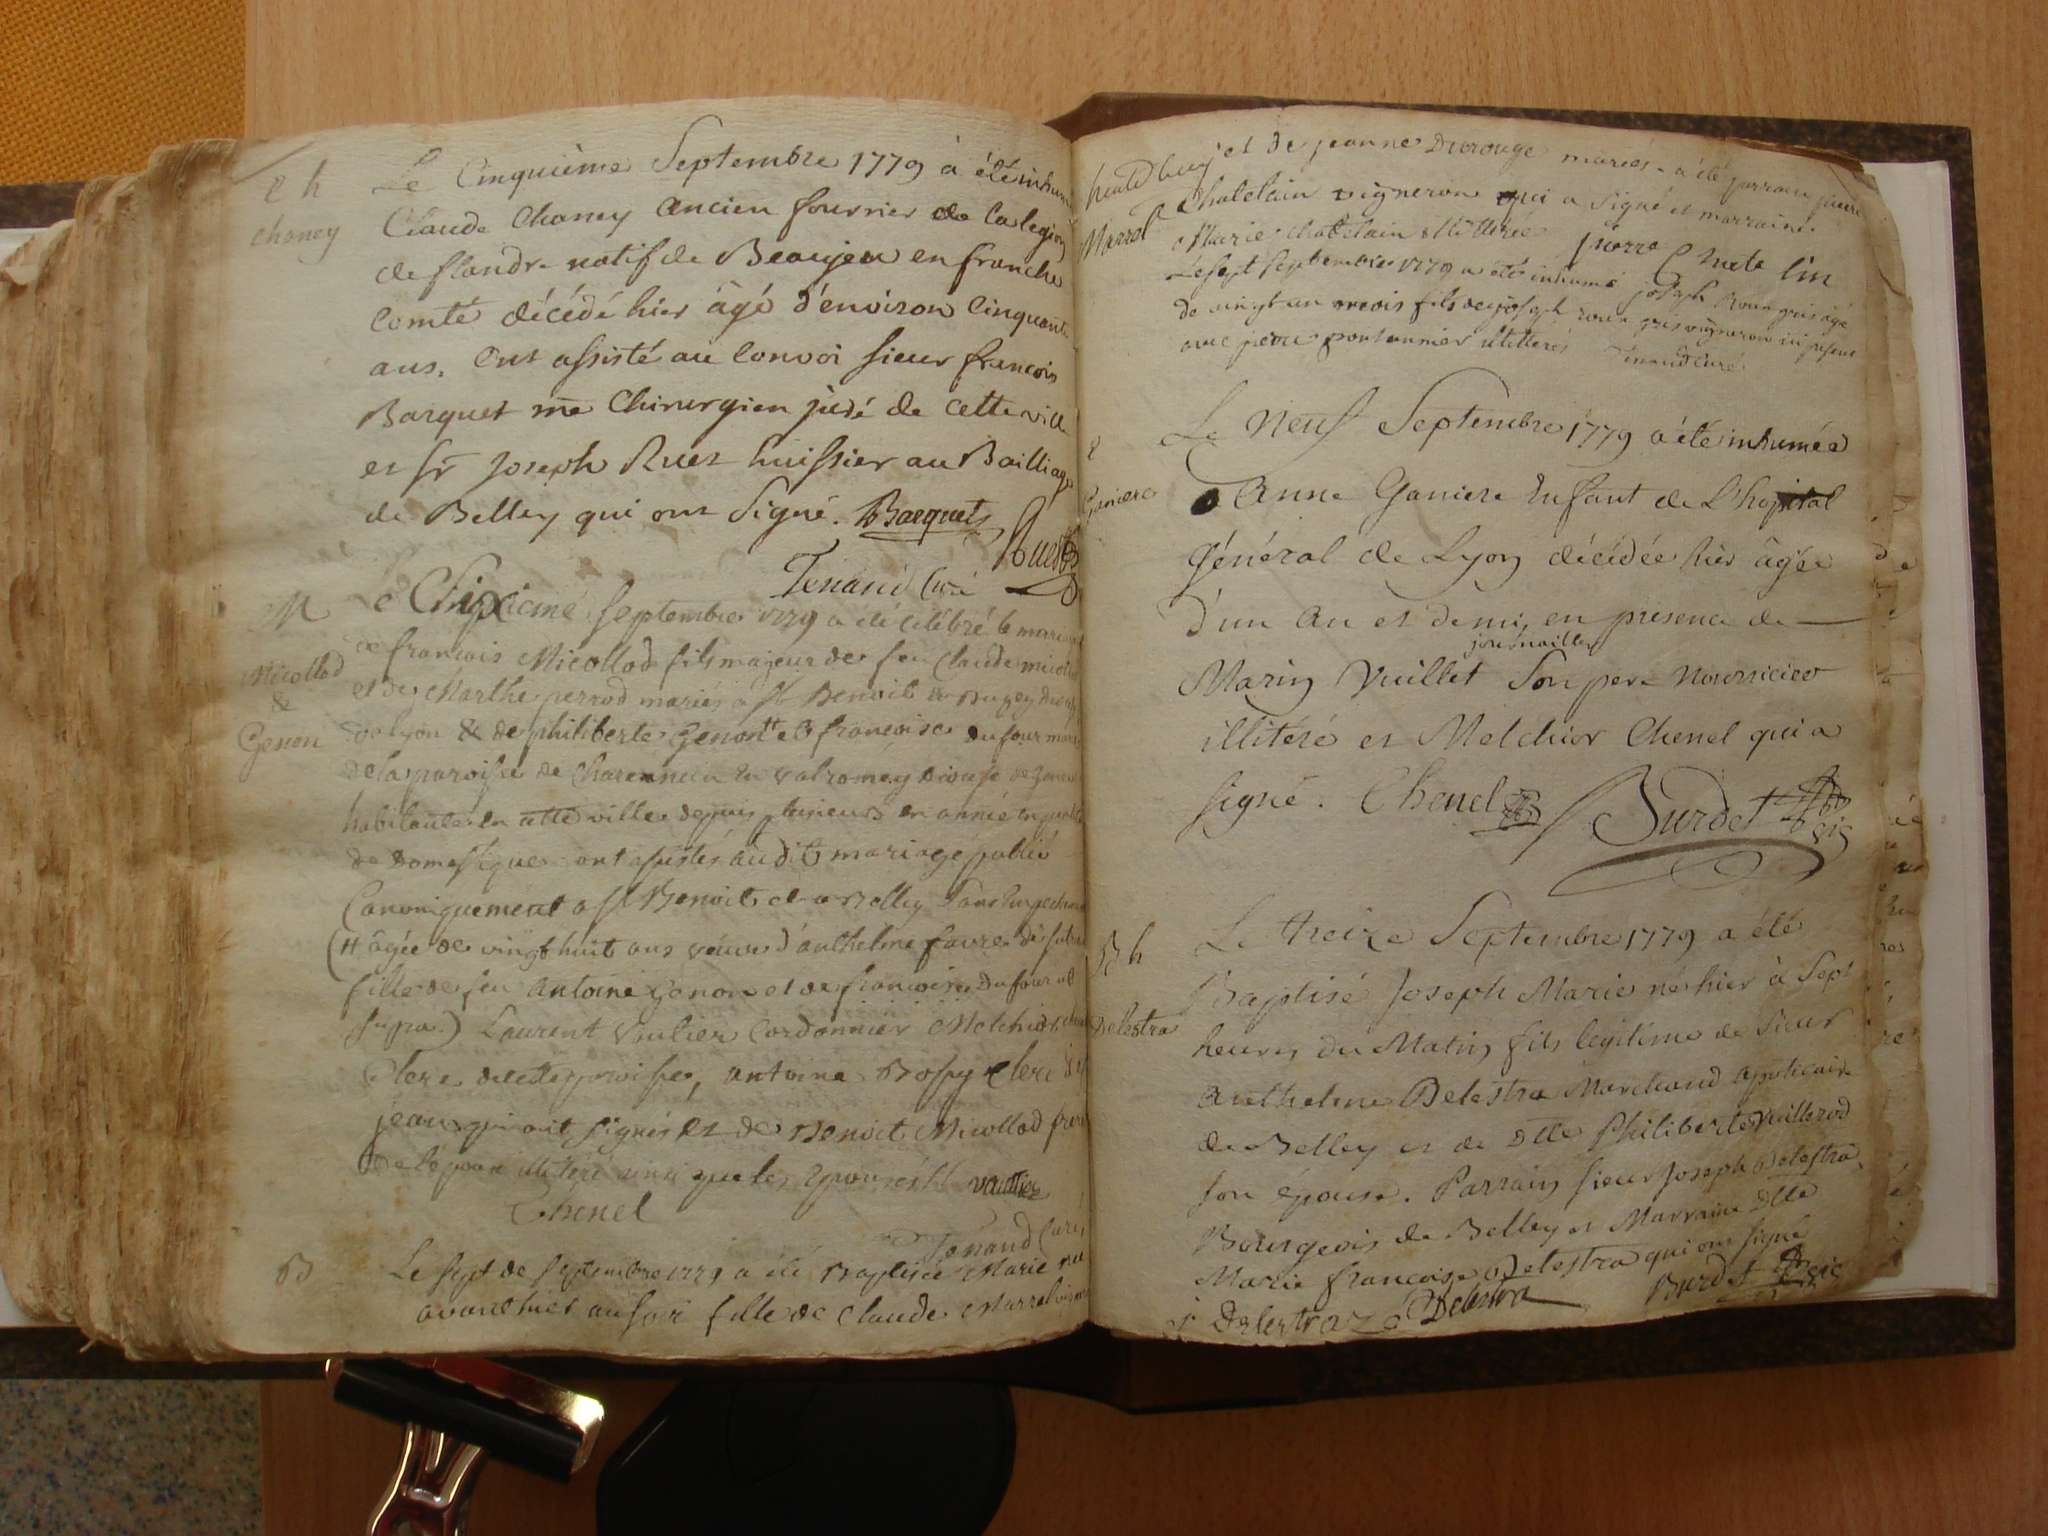 Le Cinquiême Septembre 1779 à été inhumé
chaney
Claude Chaney ancien fourrier de la legion
de flandre natif de Beaujeu en franche
Comté décédé hier âgé d'environ Cinquante
ans. Ont assisté au Convoi sieur francois
Barquet me Chirurgien juré de cette ville
et sr Joseph Ruet huissier au Bailliage
de Belley qui ont Signé. Barquet
Ruet
Tenand Curé
M
septembre 1779 a été célébré le mariage
Micollod
&
Genon
de francois Micollod fils majeur de feu Claude
et de Marthe perrod mariés a st Benoit en Bugey
de lyon & de philiberte Genon et francoise du four
de la paroisse de en valromey
habitante en cette ville depuis plusieurs année
de domestique ont assistés audit mariage publié
Canoniquement a st Benoit et a Belley Sans
(# âgée de vingt huit ans veuve d'anthelme favre
fille de feu antoine Genon et de francoise Dufour ut
supra) Laurent Vautier Cordonnier Melchior
Clerc de cette paroisse, antoine Bossy clerc
qui ont signés et de Benoit Micollod frere
illiteré ainsi que les epoux vautier
Chenel
Tenand Curé
B
Le sept de septembre 1779 a été Baptisée Marie née
avant hier au soir fille de Claude Marrel
Marrel
et de jeanne Durouge mariés a été parrain pierre
Chatelain vigneron qui a signé et marraine
Marie Chatelain illitérée pierre
Le sept septembre 1779 a été inhumé joseph
de vingt un mois fils de joseph vigneron
avec pierre illitterés Tenand Curé
Le Neuf Septembre 1779 a été inhumée
Ganiere
Anne Ganiere Enfant de L'hopital
Général de Lyon décédée hier âgée
d'un an et demi, en presence de
journailler
Marin Vuillet Son pere Nourricier
illitéré et Melchior Chenel qui a
signé. Chenel Burdet
B h
Le treize Septembre 1779 a été
Baptisé Joseph Marie né hier à Sept
Delestra
heures du Matin fils legitime de Sieur
Anthelme Delestra Marchand apoticaire
de Belley et de Dlle Philiberte Vuillerod
son épouse. Parrain sieur Joseph Delestra
Bourgeois de Belley et Marraine Dlle
Marie francoise Delestra qui ont signé
Delestraz Delestra Burdet